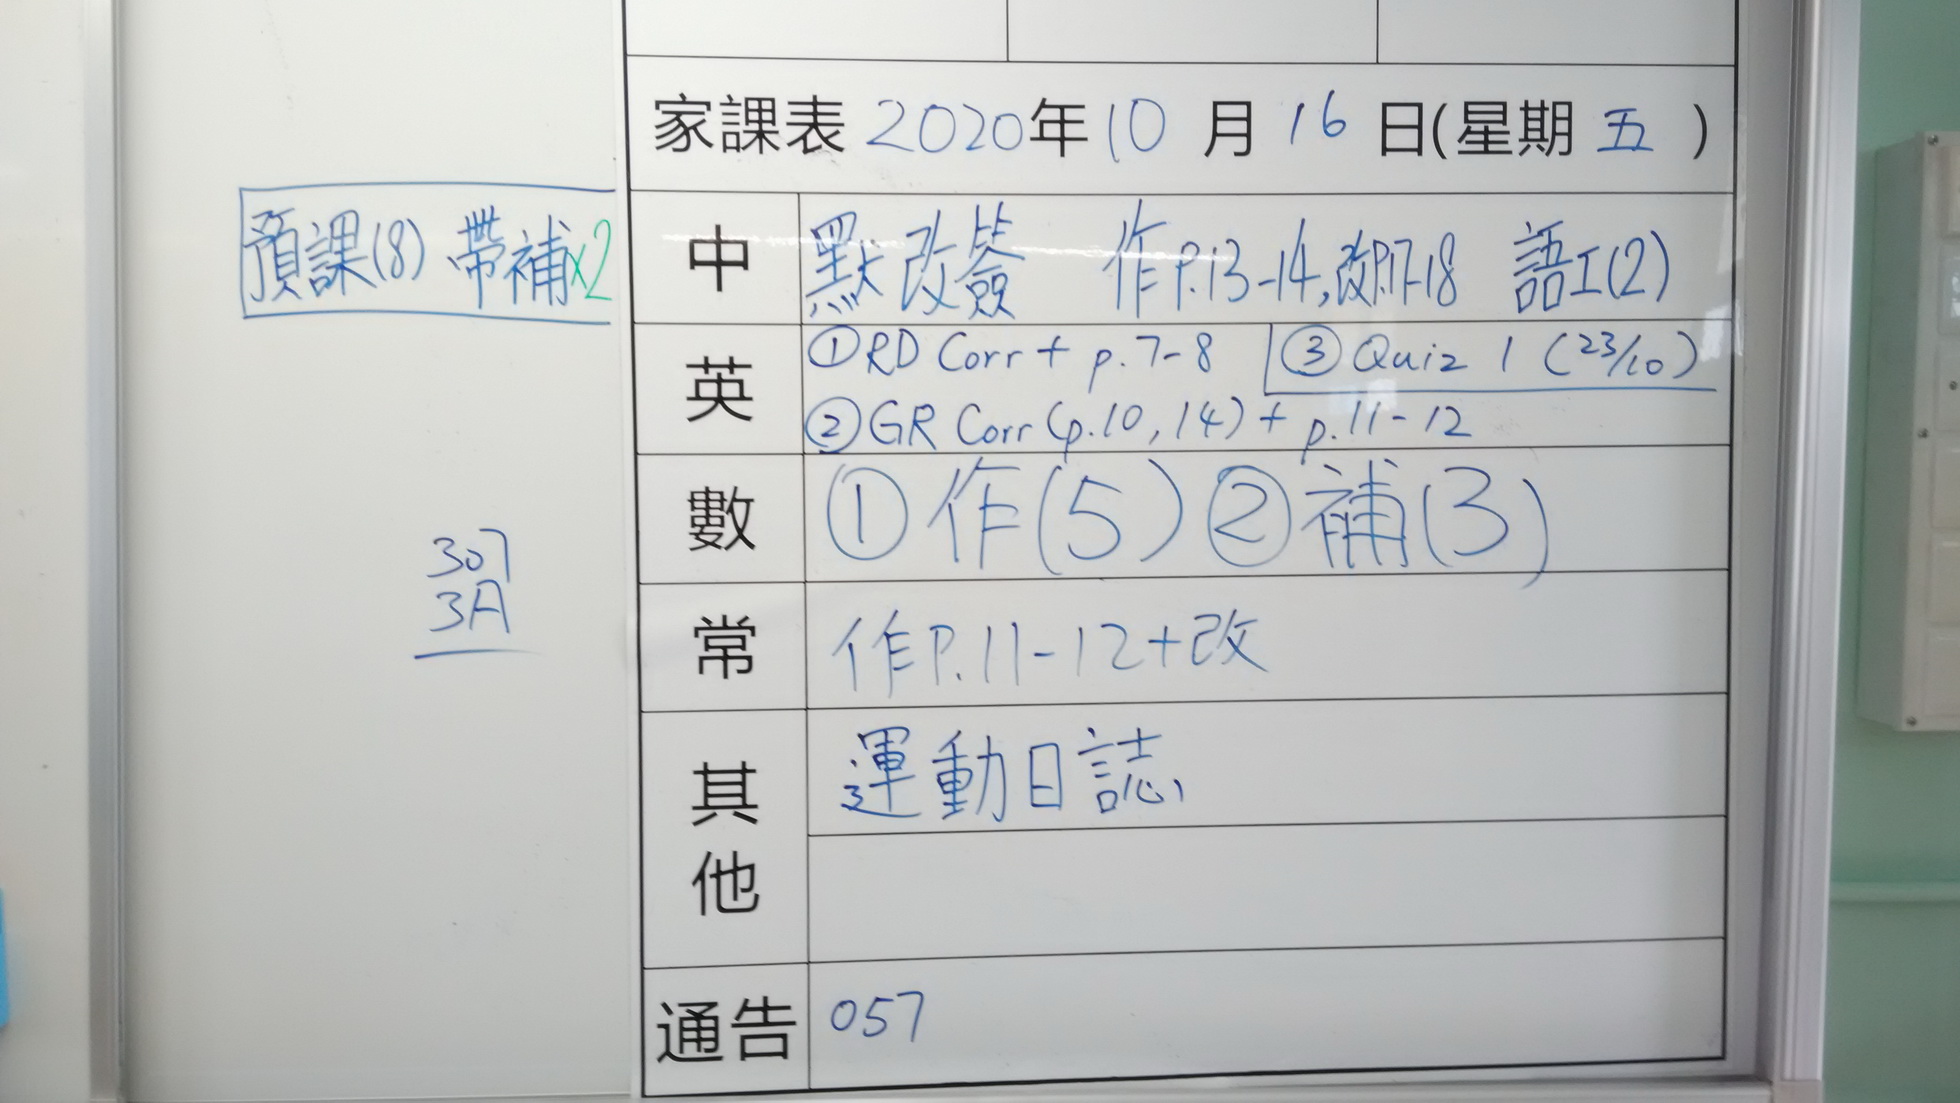 家課表 2020年10月16日(星期五)
預課(8) 帶補x2
中 默改簽 作P.13-14,改P.17-18 語工(2)
英 ①RD Corr + p.7-8 ③Quiz 1 (23/10)
②GR Corr (p.10, 14) + p.11-12
數 ①作(5) ②補(3)
307
3A
常 作P.11-12+改
其他 運動日誌
通告 057